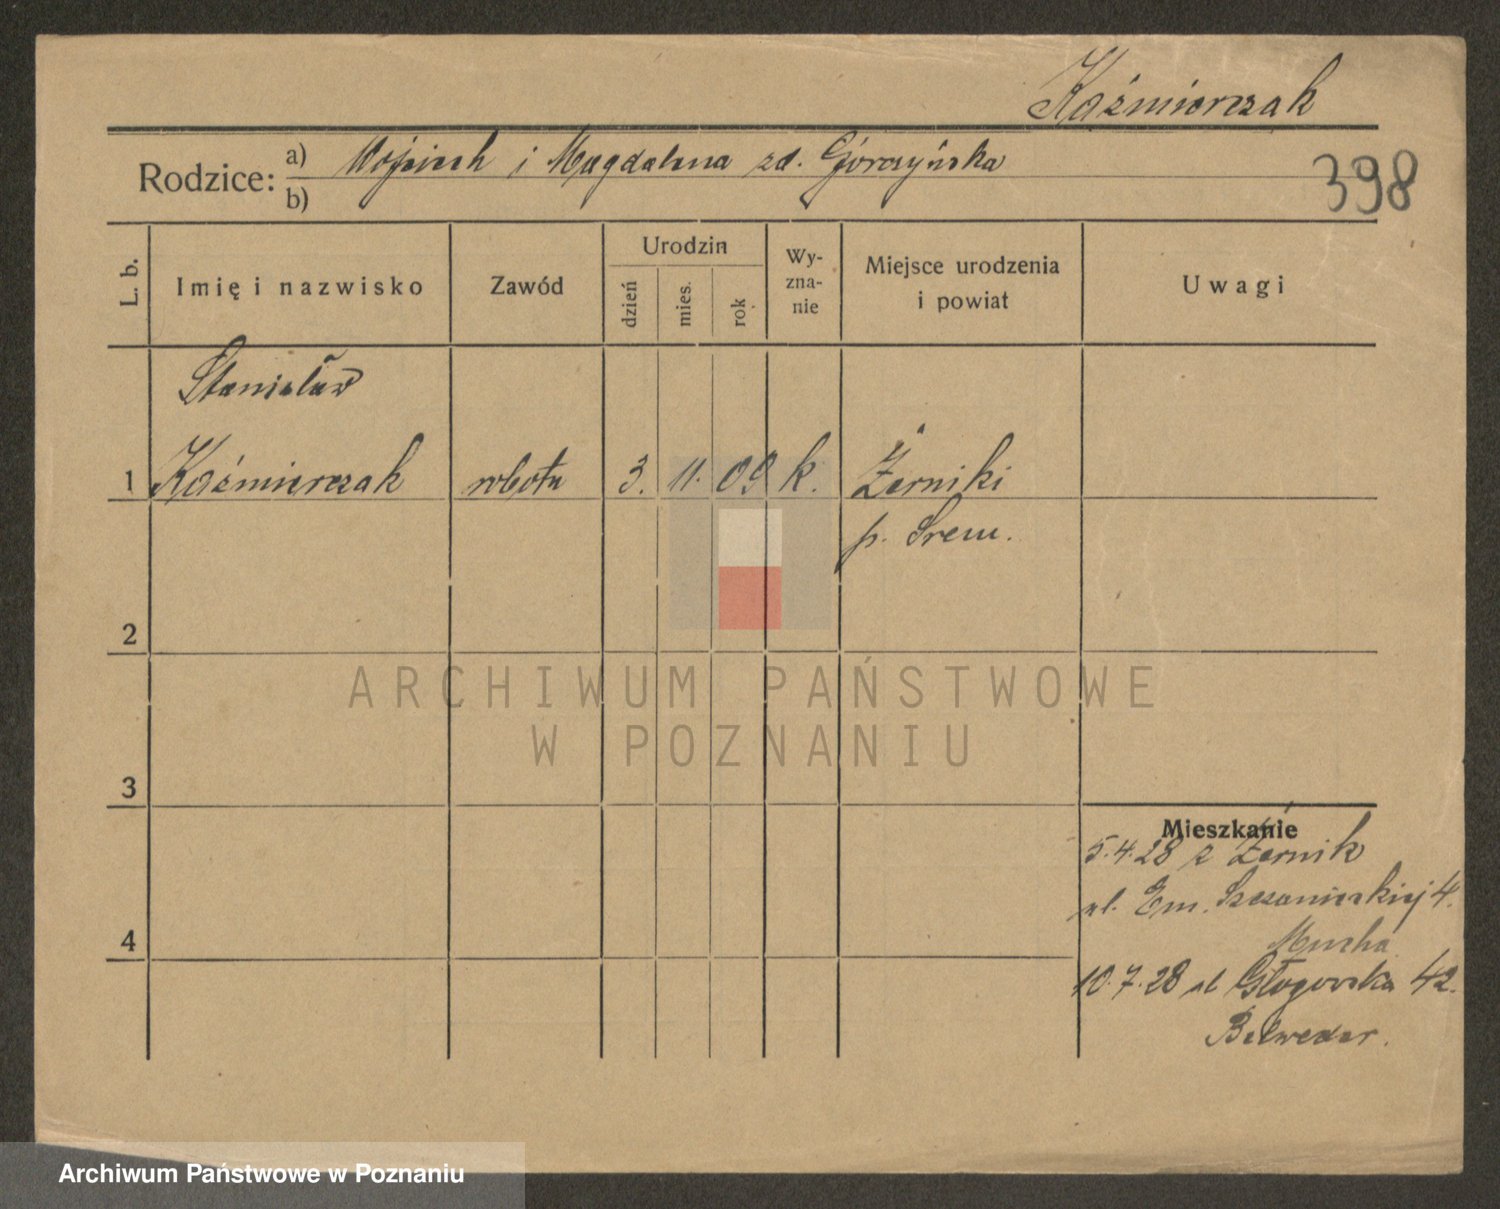 Kaźmierczak
Rodzice: a) Wojciech i Magdalena zd. Górczyńska
b)
398
L. b.
Imię i nazwisko
Zawód
Urodzin
dzień
mies.
rok
Wy-
zna-
nie
Miejsce urodzenia
i powiat
Uwagi
Stanisław
1 Kaźmierczak robotn 3. 11. 09 k. Żerniki
p. Śrem.
2
3
4
Mieszkanie
5.4.28 z Żernik
ul. Em. Szczanieckiej 4.
Mucha
10.7.28 ul Głogowska 42.
Belweder.
ARCHIWUM PAŃSTWOWE
W POZNANIU
Archiwum Państwowe w Poznaniu